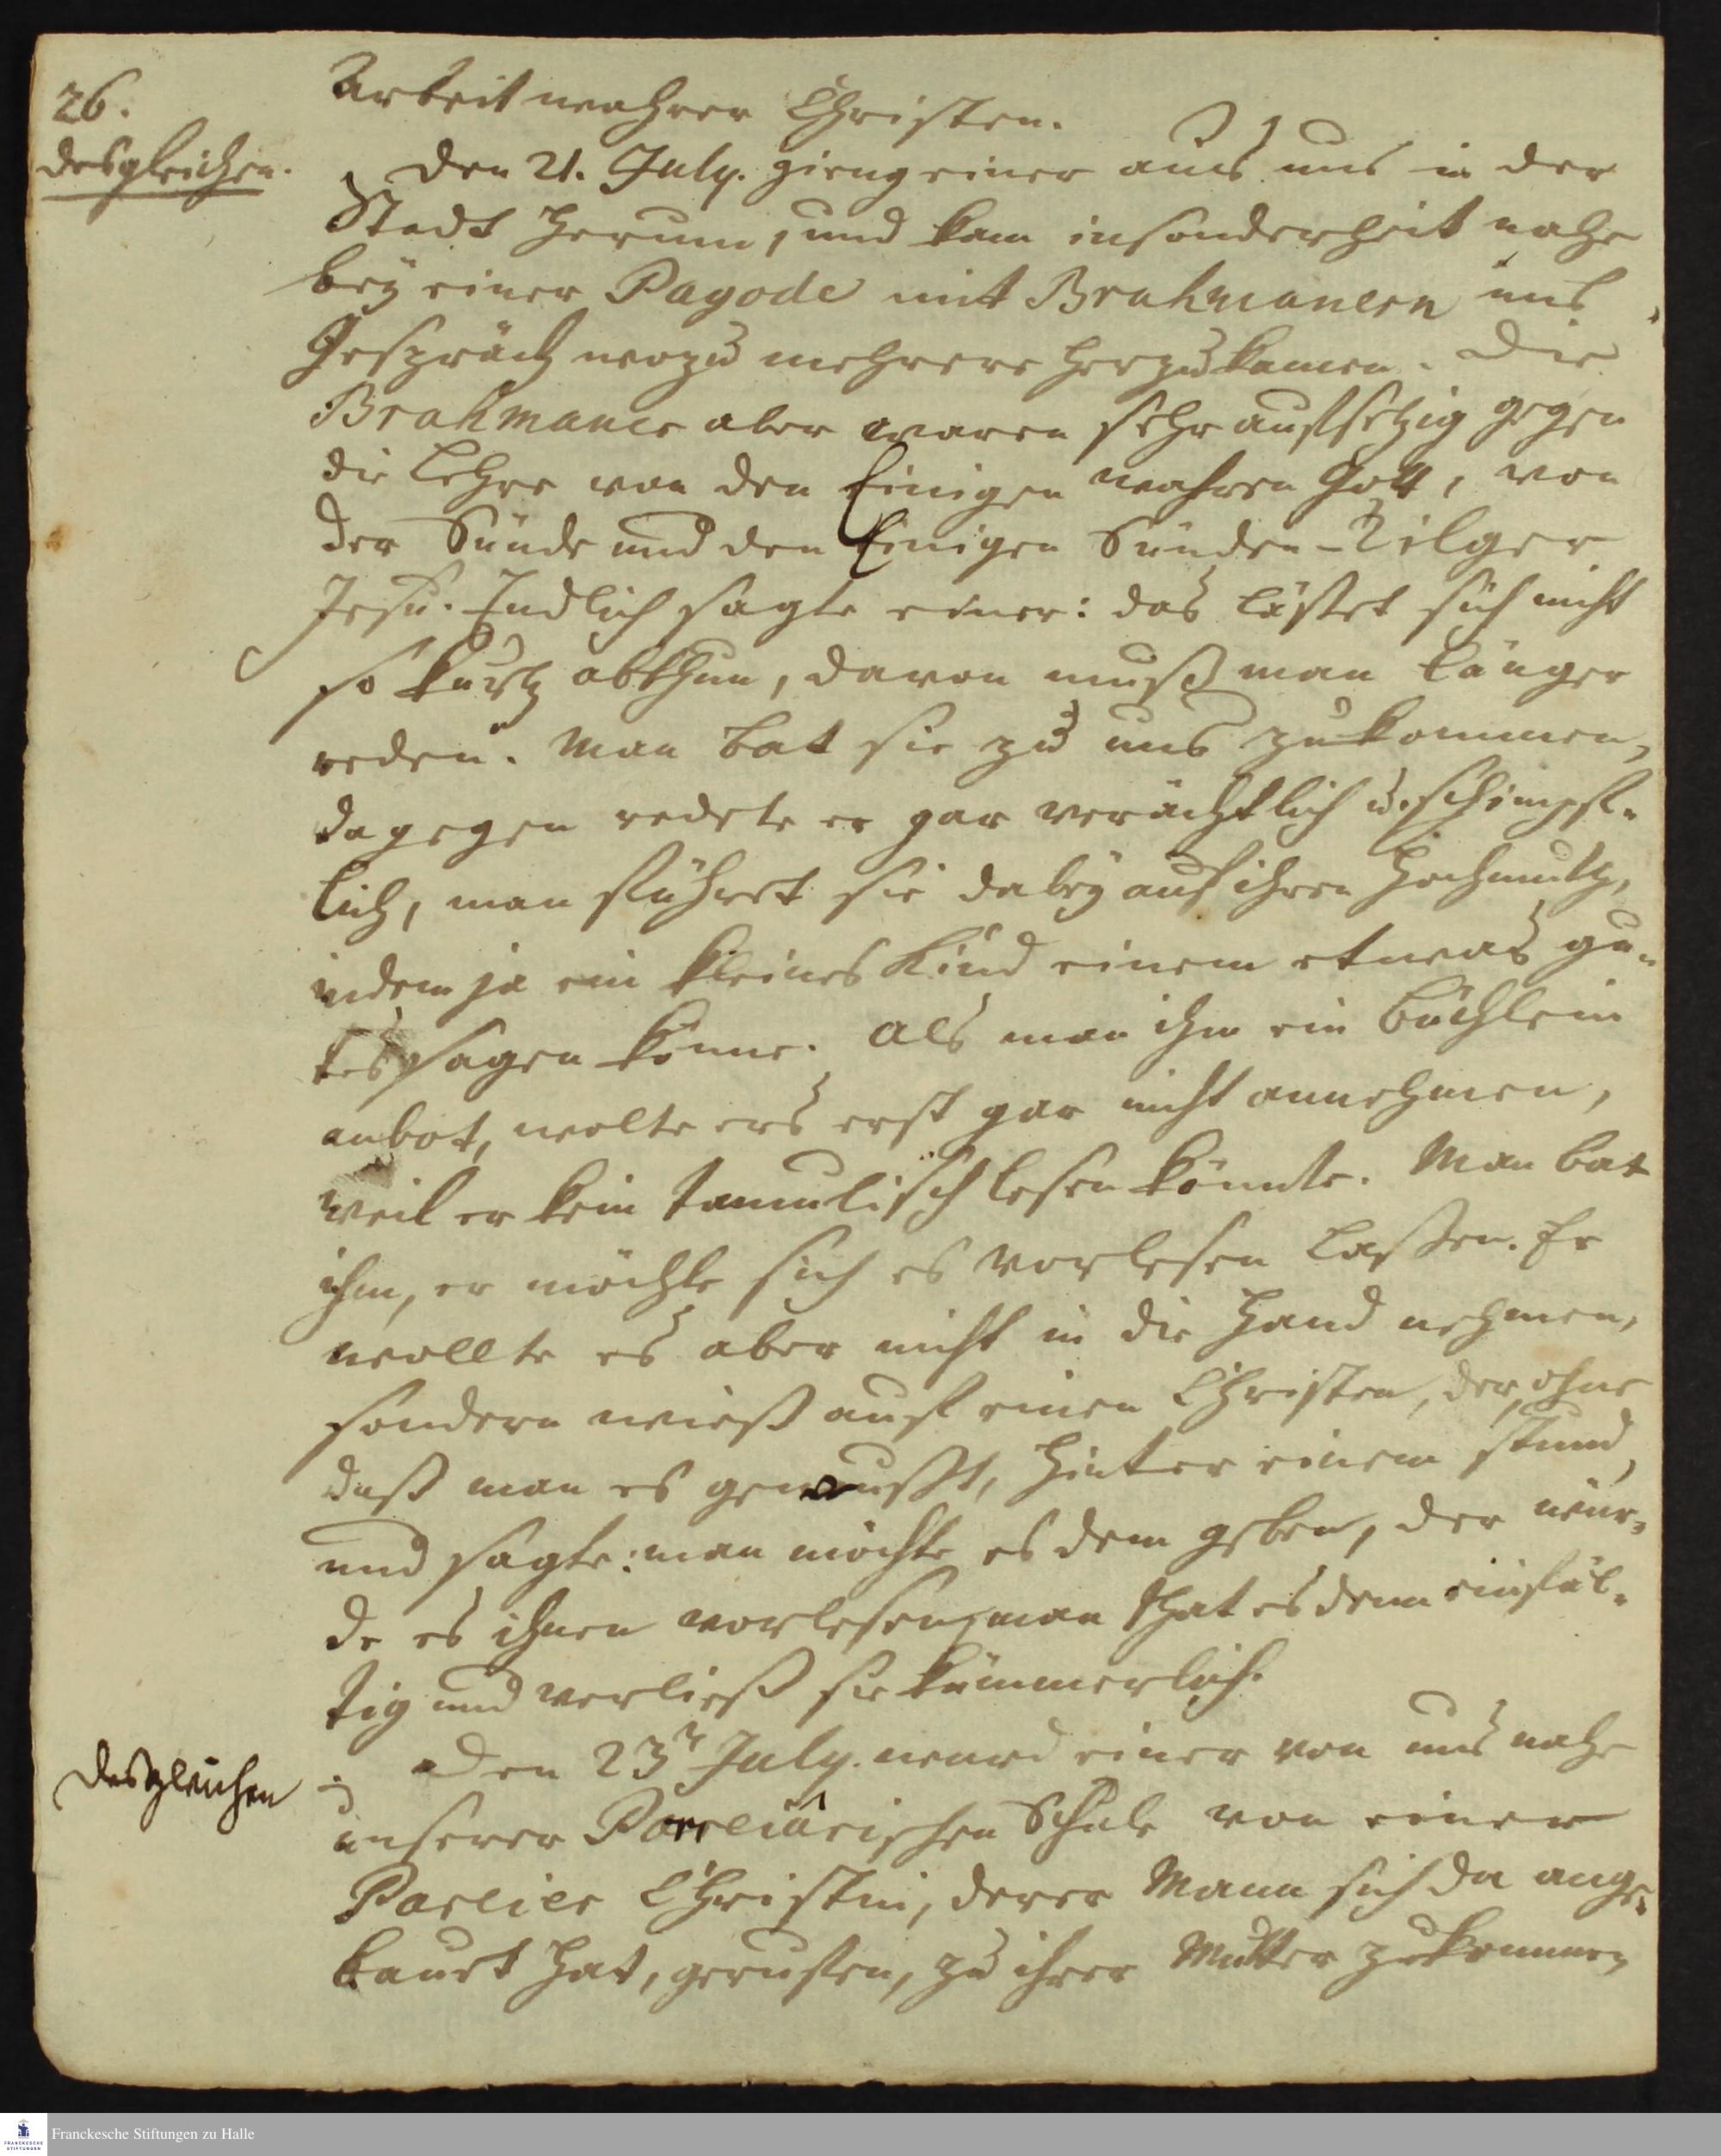 26.
desgleichen.
Arbeit wahrer Christen.
Den 21. July. gieng einer aus uns in der
Stadt herum, und kam insonderheit nahe
bey einer Pagode mit Brahmanern ins
Gespräch wozu mehrere herzu kamen. Die
Brahmaner aber waren sehr aufsetzig gegen
die Lehre von den Einigen wahren Gott, von
der Sünde und den Einigen Sünden-Tilger
Jesu. Endlich sagte einer: das läßet sich nicht
so kurtz abthun, davon muß man länger
reden. Man bat sie zu uns zu kommen,
dagegen redete er gar verächtlich u. schimpf-
lich, man führet sie dabey auf ihren Hochmuth,
indem ja ein kleines Kind einem etwas gu-
tes sagen könne. Als man ihm ein Büchlein
anbot, wolte ers erst gar nicht annehmen,
weil er kein tamulisch lesen könnte. Man bat
ihm, er möchte sich es vorlesen laßen. Er
wollte es aber nicht in die Hand nehmen,
sondern wieß auf einen Christen, der, ohne
daß man es gewußt, hinter einem stund,
und sagte: man möchte es dem geben, der wür-
de es ihnen vorlesen, man that es denn einfäl-
tig und verließ sie kümmerlich.
desgleichen
Den 23n July. ward einer von uns nahe
unserer Parreiärischen Schule von einer
Parreier Christin, derer Mann sich da ange-
bauet hat, gerufen, zu ihrer Mutter zu kommen,
Franckesche Stiftungen zu Halle
FRANCKESCHE
STIFTUNGEN